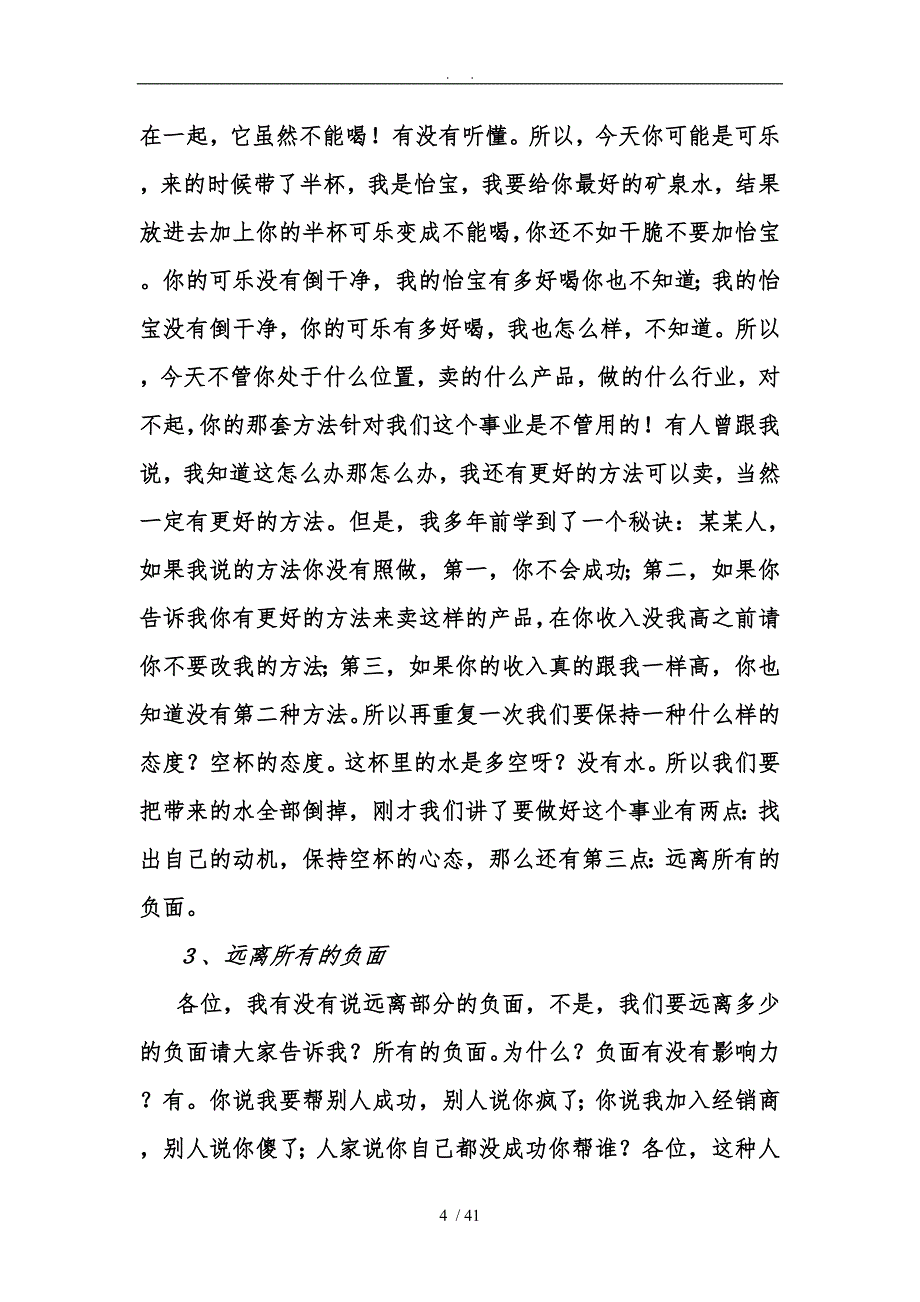 在一起，它虽然不能喝！有没有听懂。所以，今天你可能是可乐
，来的时候带了半杯，我是怡宝，我要给你最好的矿泉水，结果
放进去加上你的半杯可乐变成不能喝，你还不如干脆不要加怡宝
。你的可乐没有倒干净，我的怡宝有多好喝你也不知道；我的怡
宝没有倒干净，你的可乐有多好喝，我也怎么样，不知道。所以
，今天不管你处于什么位置，卖的什么产品，做的什么行业，对
不起，你的那套方法针对我们这个事业是不管用的！有人曾跟我
说，我知道这怎么办那怎么办，我还有更好的方法可以卖，当然
一定有更好的方法。但是，我多年前学到了一个秘诀：某某人，
如果我说的方法你没有照做，第一，你不会成功；第二，如果你
告诉我你有更好的方法来卖这样的产品，在你收入没我高之前请
你不要改我的方法；第三，如果你的收入真的跟我一样高，你也
知道没有第二种方法。所以再重复一次我们要保持一种什么样的
态度？空杯的态度。这杯里的水是多空呀？没有水。所以我们要
把带来的水全部倒掉，刚才我们讲了要做好这个事业有两点：找
出自己的动机，保持空杯的心态，那么还有第三点：远离所有的
负面。
3、远离所有的负面
各位，我有没有说远离部分的负面，不是，我们要远离多少
的负面请大家告诉我？所有的负面。为什么？负面有没有影响力
？有。你说我要帮别人成功，别人说你疯了；你说我加入经销商
，别人说你傻了；人家说你自己都没成功你帮谁？各位，这种人
4 / 41